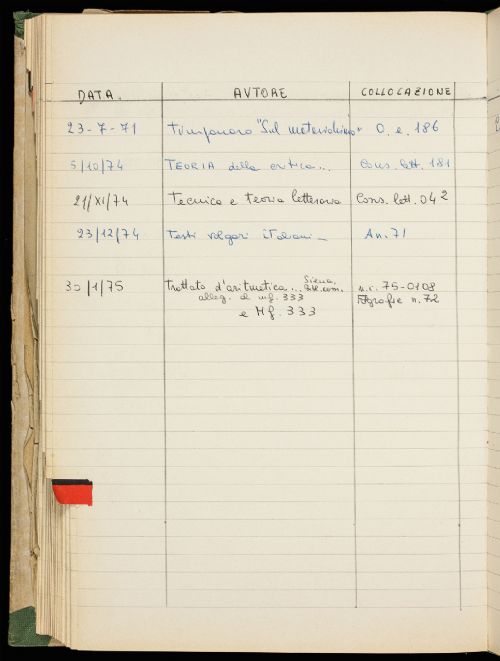 DATA. AVTORE COLLOCAZIONE
23-7-71 Timpanaro "Sul materialismo" O. e. 186
5/10/74 TEORIA della critica... Cons. lett. 181
21/XI/74 Tecnica e teoria letteraria Cons. lett. 04²
23/12/74 Testi volgari italiani - An. 71
30/1/75 Trattato d'aritmetica... Siena, Bibl. com. n.c. 75-0108
alleg. al mf. 333 Fotografie n. 72
e Mf. 333